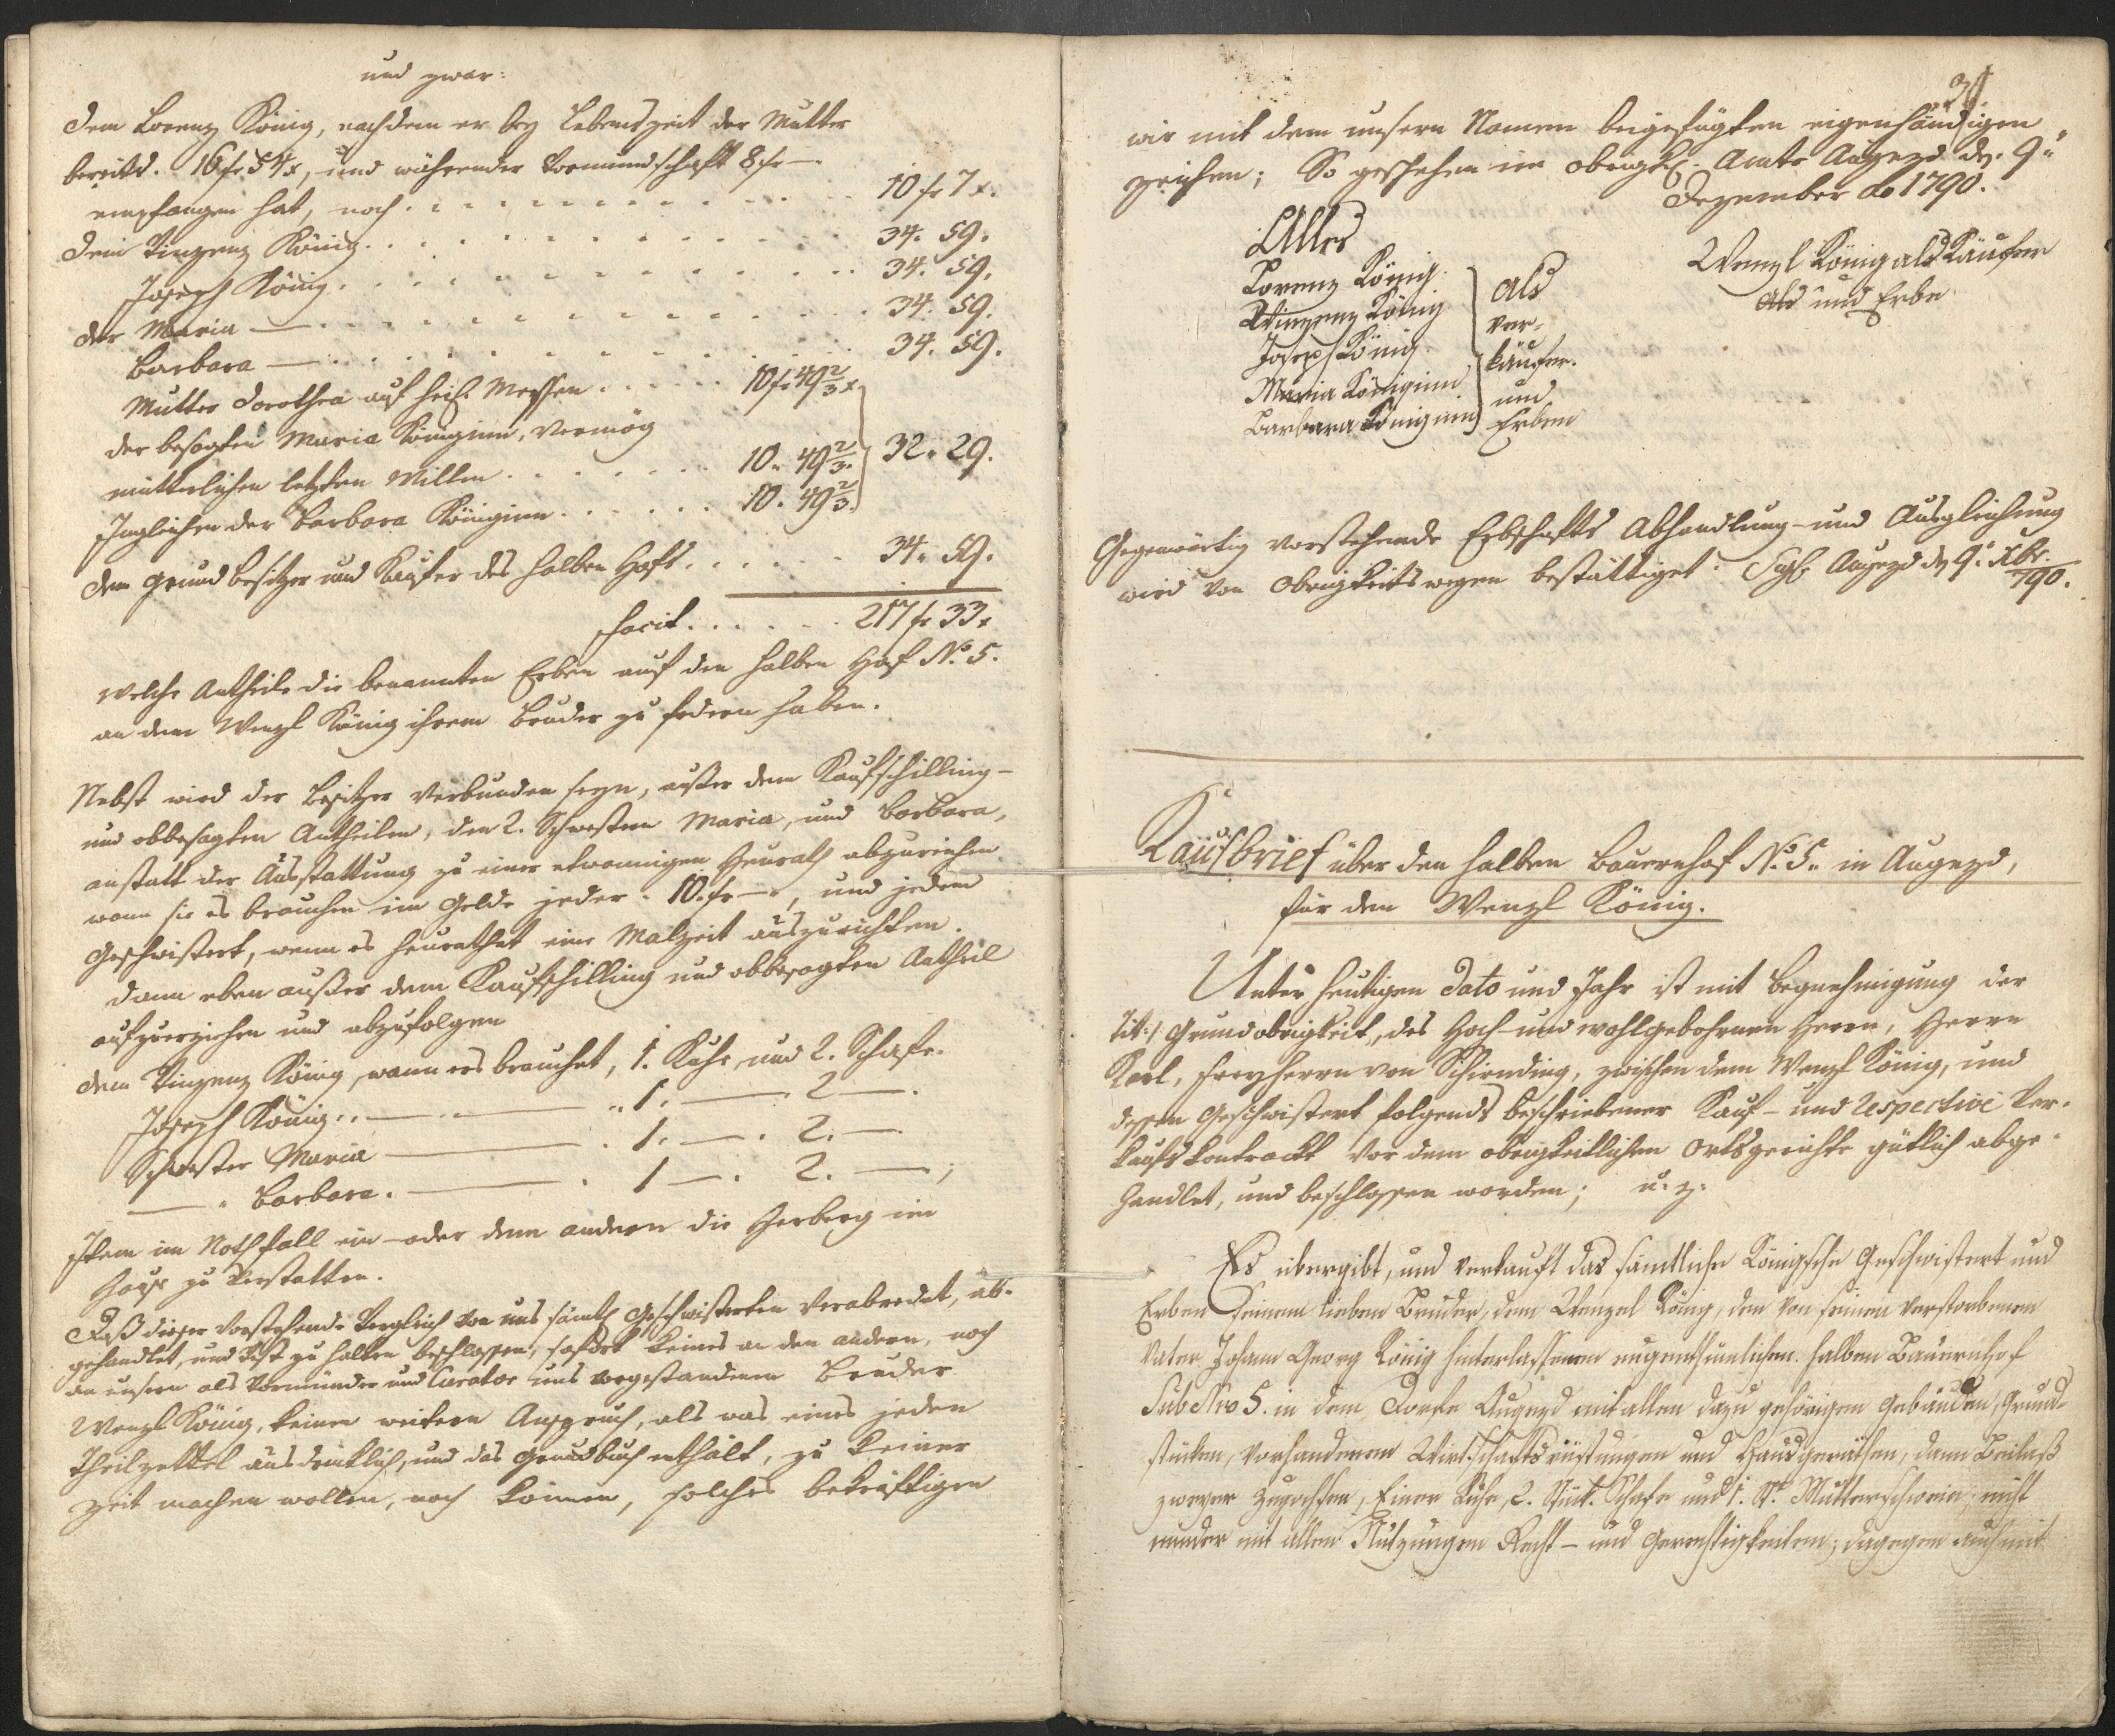 und zwar:
Dem Lorenz König, nachdem er bey Lebenszeit der Mutter
bereits. 16 fr 54 x, und währender Vormundschaft 8 fr —
empfangen hat, noch . . . . . . . . . . 10 fr 7 x.
Dem Vinzenz König . . . . . . . . . . 34. 59.
Joseph König . . . . . . . . . . 34. 59.
der Maria — . . . . . . . . . . 34. 59.
Barbara — . . . . . . . . . . 34. 59.
Mutter Dorothea auf heil. Messen . . . . . 10 f. 49 2/3 x
der besagten Maria Königinn, vermög
mütterlichen letzten Willen . . . . . . 10. 49 2/3. } 32. 29.
Ingleichen der Barbara Königinn . . . . . . 10. 49 2/3.
Dem Grund Besitzer und Kaufer des halben Hofs . . . . . . 34. 59.
facit . . . . . . 217 fr 33 x
welche Antheile die benannten Erben auf den halben Hof No. 5.
an dem Wenzl König ihrem Bruder zu fodern haben.
Nebst wird der Besitzer verbunden seyn, außer dem Kaufschilling-
und obbesagten Antheilen, den 2. Schwestern Maria, und Barbara,
anstatt der Ausstattung zu einer etwannigen Heurath abzureichen
wann sie es brauchen im Gelde jeder . 10. fr —, und jedem
Geschwistert, wenn es heurathet eine Malzeit auszurichten.
Dann eben außer dem Kaufschilling und obbesagten Antheil
aufzuerziehen und abzufolgen
Dem Vinzenz König, wann ers brauchet, 1. Kuhe, und 2. Schafe.
Joseph König . . — — " 1. — 2 —.
Schwester Maria — . 1. — . 2. —.
— " Barbara. — . 1 — . 2. — ;
Item im Nothfall ein- oder dem andern die Herberg im
Hause zu verstatten.
Daß dieser vorstehende Vergleich von uns sämtl Geschwisterten verabredet, ab-
gehandlet, und vest zu halten beschlossen, sofort keines an den andern, noch
an unsern als Vormünder und Curator uns vorgestandenen Bruder
Wenzl König, keinen weitern Anspruch, als was eines jeden
Theilzettel ausdrücklich, und das Grundbuch enthält, zu keiner
Zeit machen wollen, noch können, solches bekräftigen
wir mit dem unsern Namen beigefügten eigenhändigen
Zeichen; So geschehen im obrigkl. Amte Augezd d. 9.
Dezember ao 1790.
Alles
Lorenz König.
Vinzenz König
Joseph König
Maria Königinn
Barbara Königinn
als
ver-
käufer.
und
Erben
Wenzl König als Käufer
als und Erbe
Gegenwärtig vorstehende Erbschafts Abhandlung- und Ausgleichung
wird von Obrigkeitswegen bestättiget. Sigl. Augezd d. 9. Xbr. 790.
Kaufbrief über den halben Bauernhof No. 5. in Augezd,
für den Wenzl König.
Unter heutigen Dato und Jahr ist mit Begnehmigung der
Tit:/ Grundobrigkeit, des Hoch- und wohlgebohrnen Herrn, Herrn
Karl, Freyherrn von Schirnding, zwischen dem Wenzl König, und
dessen Geschwistert folgends beschriebener Kauf- und respective Ver-
kaufskontrackt vor dem obrigkeitlichen Ortsgerichte gütlich abge-
handlet, und beschlossen worden; u. z.
Es übergibt, und verkauft das sämtliche Königsche Geschwistert und
Erben seinem lieben Bruder, dem Wenzel König, den von seinen verstorbenen
Vater Johann Georg König hinterlassenen eugenthumlichen halben Bauernhof
Sub Nro 5. in dem Dorfe Augezd mit allen dazu gehörigen Gebäuden, Grund-
stücken, vorhandenen Wirtschaftsrüstungen und Hausgeräthen, dann Beilaß
zweyer Zugochsen, Einer Kuhe, 2. Stück. Schafe und 1. St. Mutterschwein, nicht
minder mit allen Nutzungen Recht- und Gerechtigkeiten; dagegen auch mit